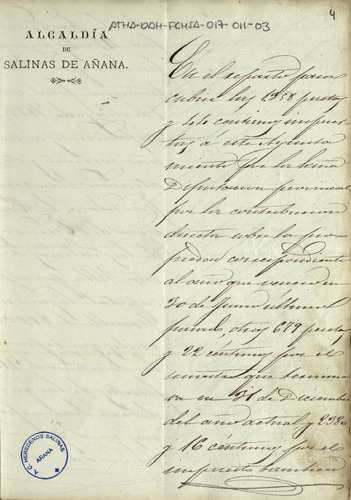 ATHA-DAH-FCHSA-017-011-03
4
ALCALDÍA
DE
SALINAS DE AÑANA.
En el reparto para
cubrir las 1.358 pesetas
y céntimos impues
tas á este Ayunta
miento por la Exma
Diputacion provincial
por la contribucion
directa sobre la pro
piedad correspondiente
al año que vencio en
30 de Junio último
pasado, otras 679 pesetas
y 22 céntimos por el
semestre que termina
ra en 31 de Diciembre
del año actual, y 232
y 16 céntimos por el
impuesto tambien
A.C. HEREDEROS SALINAS
AÑANA